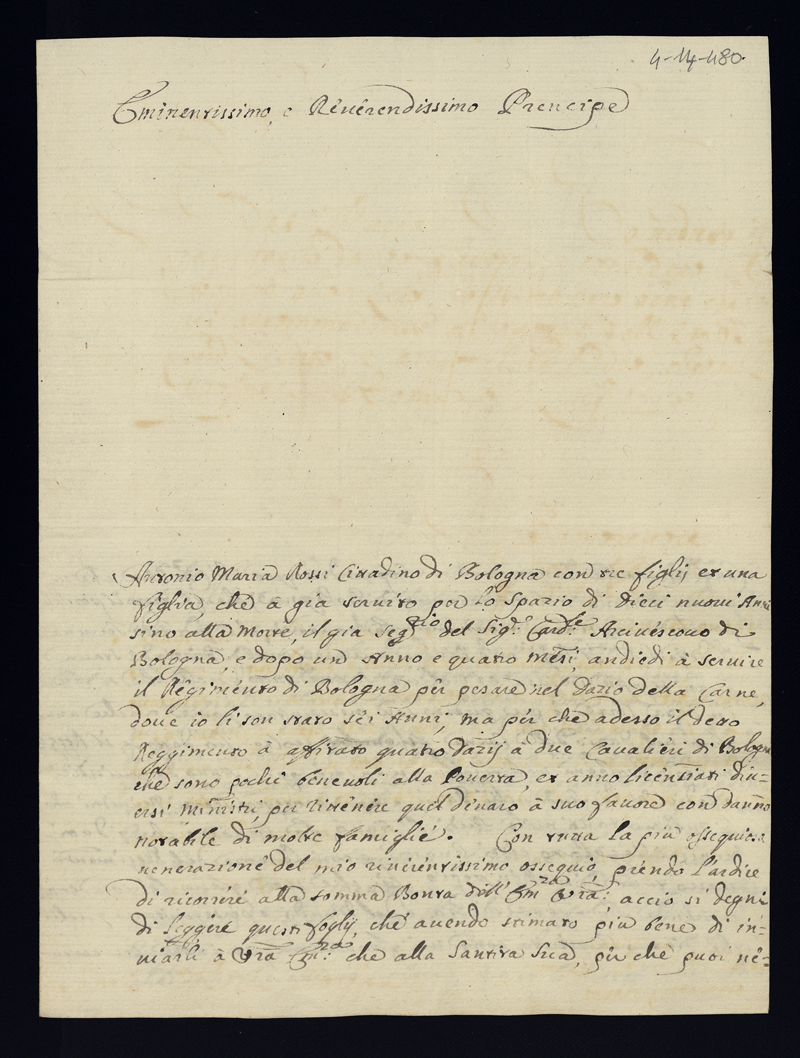 4-14-480.
Eminentissimo, e Reuerendissimo Prencipe
Antonio Maria Rossi Cittadino di Bologna con tre figlij et una
figlia, che à gia seruito per Lo Spazio di Dieci nuoui Anni
sino alla Morte, il gia Segrio del Sigr Cardle Arciuescouo di
Bologna, e dopo un Anno e quatro Mesi, andiedi à seruire
il Regimento di Bologna per pesare nel Dazio della Carne,
doue io li son stato sei Anni, ma per che adesso il deto
Reggimento à afitato quatro Dazij à due Caualieri di Bologna
che sono pochi beneuoli alla Pouertà, et anno licenziati diu=
ersi Ministri, per ritenere quel dinaro à suo fauore con danno
notabile di molte famiglie. Con tutta la piu ossequiosa
uenerazione del mio riuerentissimo ossequio, prendo l'ardire
di ricorrere alla somma Bonta dell'Emza Vra, accio si degni
di leggere questi foglij, che auendo stimato piu bene di in=
uiarli à Vra Emza che alla Santita Sua, per che puoi ne=